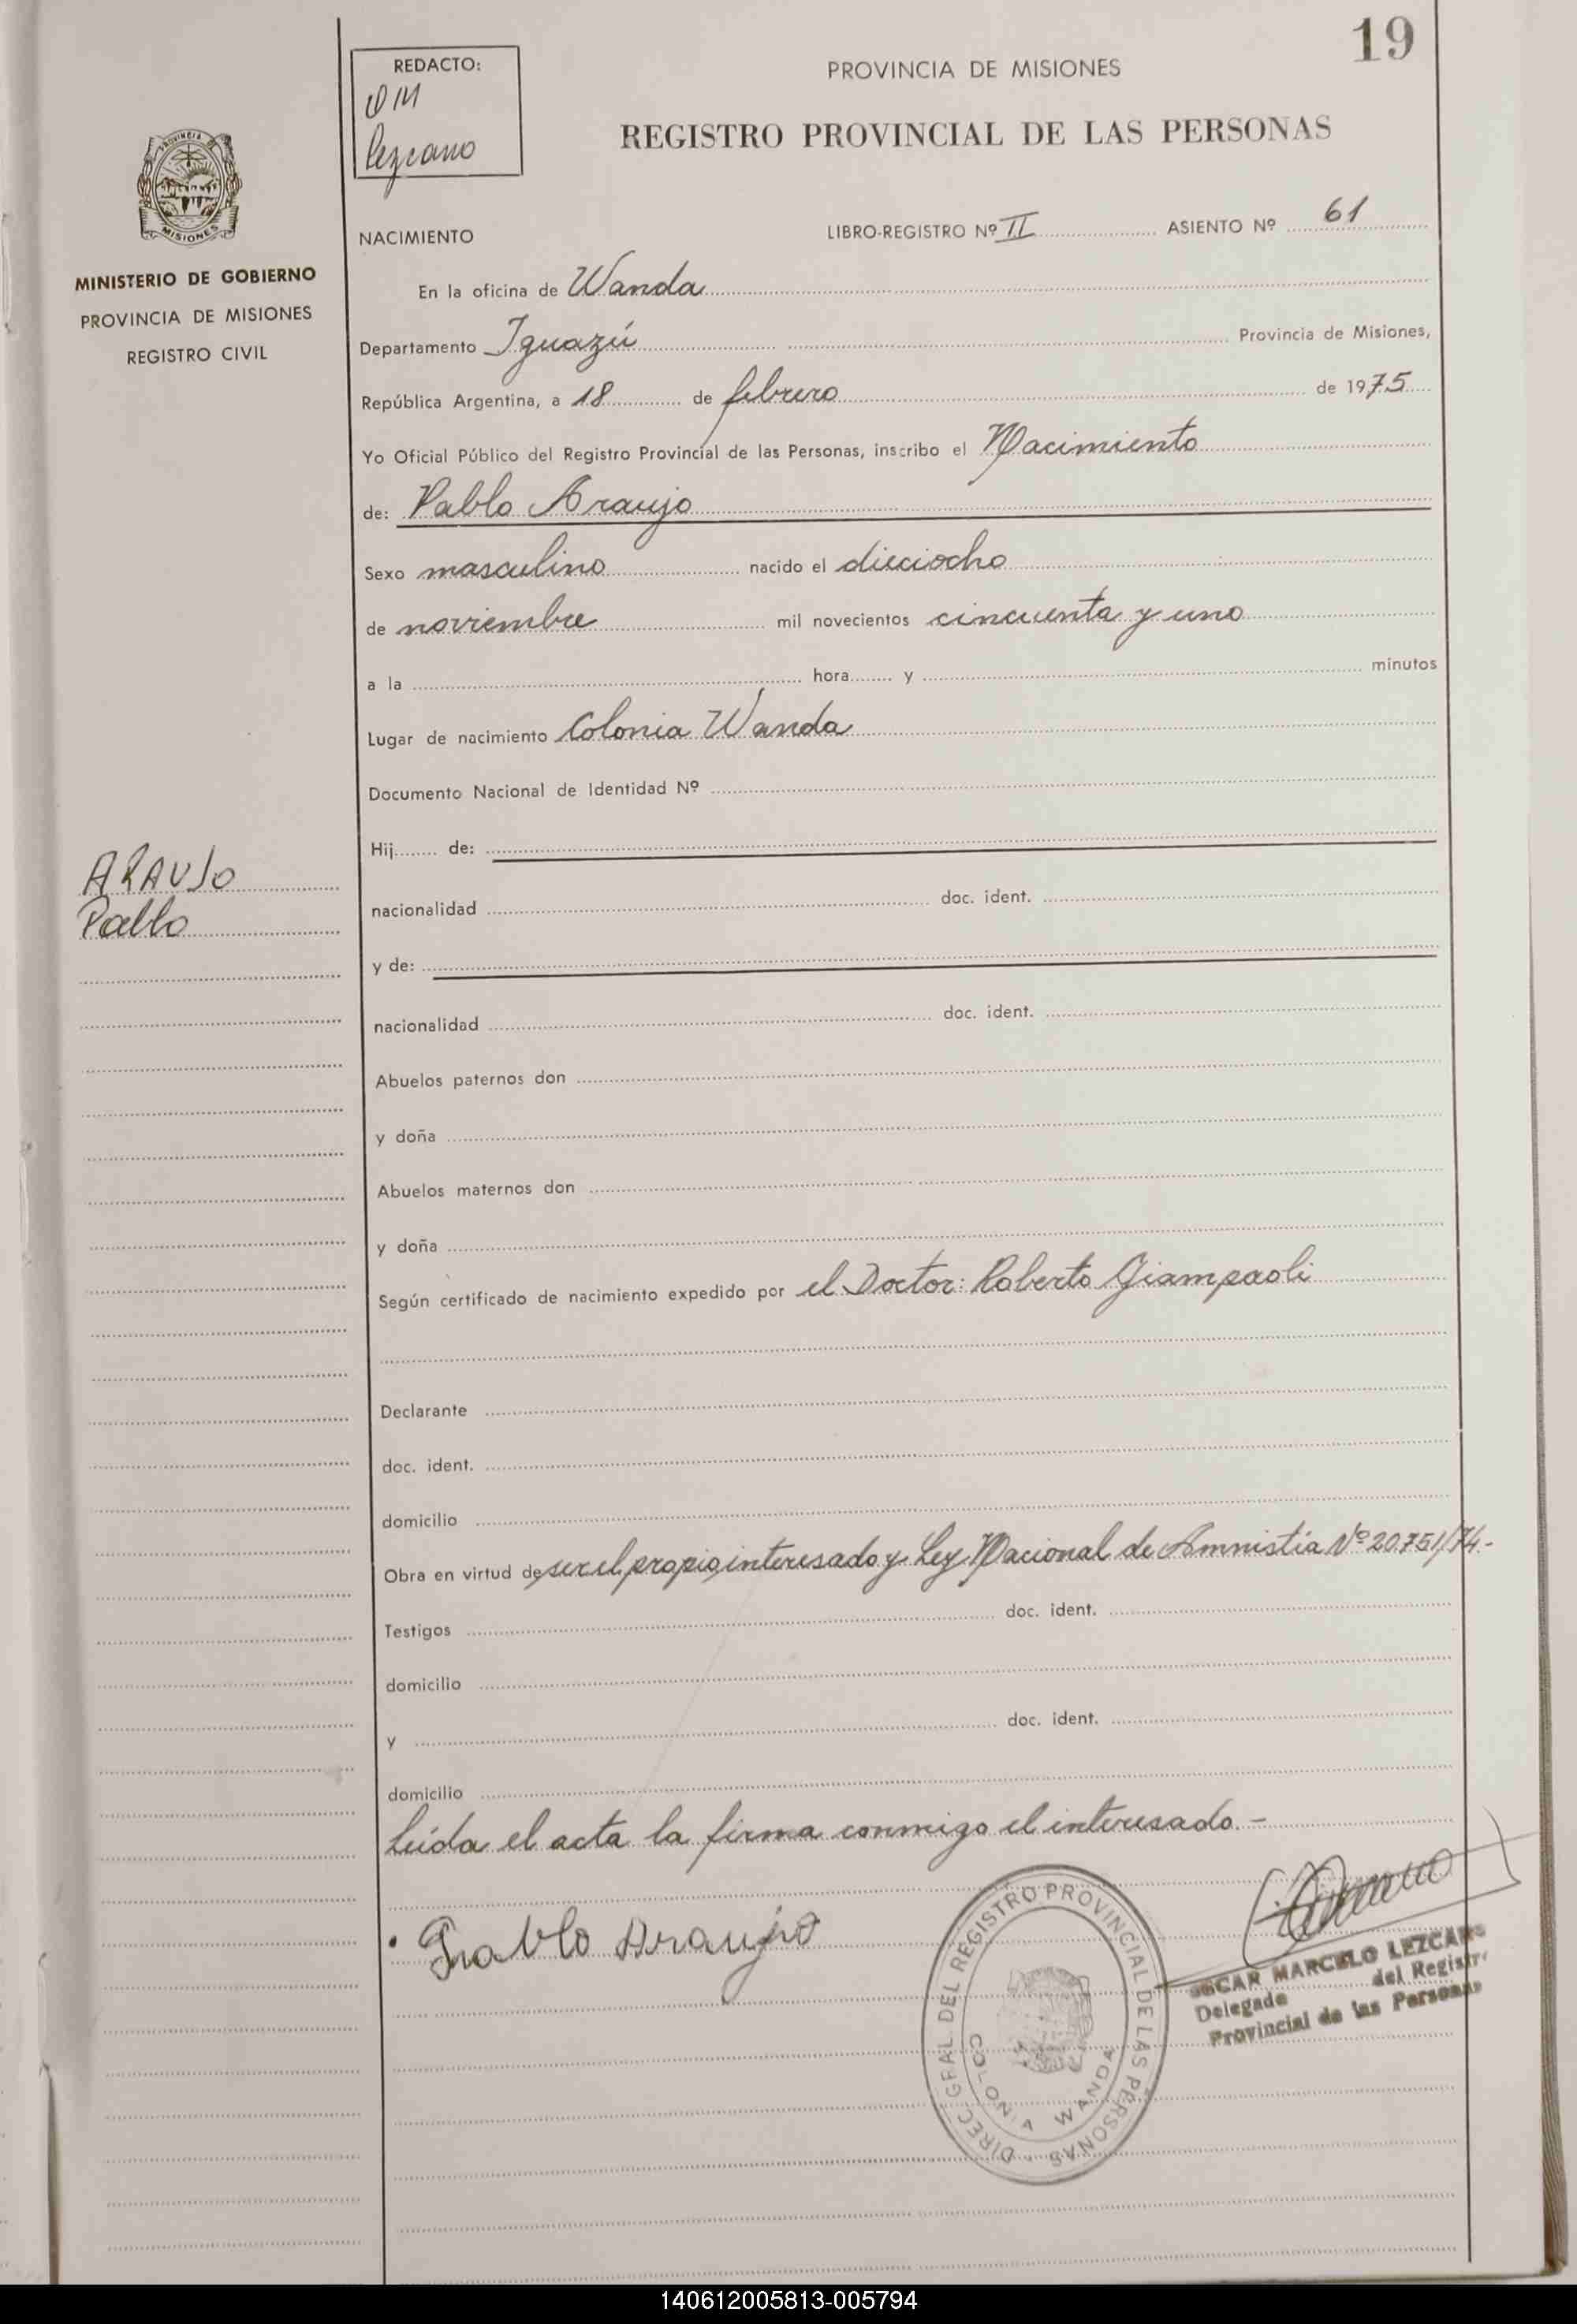 19
REDACTO:
OM
Lezcano
PROVINCIA DE MISIONES
REGISTRO PROVINCIAL DE LAS PERSONAS
PROVINCIA
MISIONES
MINISTERIO DE GOBIERNO
PROVINCIA DE MISIONES
REGISTRO CIVIL
NACIMIENTO LIBRO-REGISTRO Nº II ASIENTO Nº 61
En la oficina de Wanda
Departamento Iguazú Provincia de Misiones,
República Argentina, a 18 de febrero de 1975
Yo Oficial Público del Registro Provincial de las Personas, inscribo el Nacimiento
de: Pablo Araujo
Sexo masculino nacido el dieciocho
de noviembre mil novecientos cincuenta y uno
a la hora y minutos
Lugar de nacimiento Colonia Wanda
Documento Nacional de Identidad Nº
Hij de:
ARAUJO
Pablo
nacionalidad doc. ident.
y de:
nacionalidad doc. ident.
Abuelos paternos don
y doña
Abuelos maternos don
y doña
Según certificado de nacimiento expedido por el Doctor: Roberto Giampaoli
Declarante
doc. ident.
domicilio
Obra en virtud de ser el propio interesado y Ley Nacional de Amnistía Nº 20.751/74.-
Testigos doc. ident.
domicilio
y doc. ident.
domicilio
Leída el acta la firma conmigo el interesado.-
Pablo Araujo
DIREC. GRAL. DEL REGISTRO PROVINCIAL DE LAS PERSONAS
COLONIA WANDA
OSCAR MARCELO LEZCANO
Delegado del Registro
Provincial de las Personas
140612005813-005794